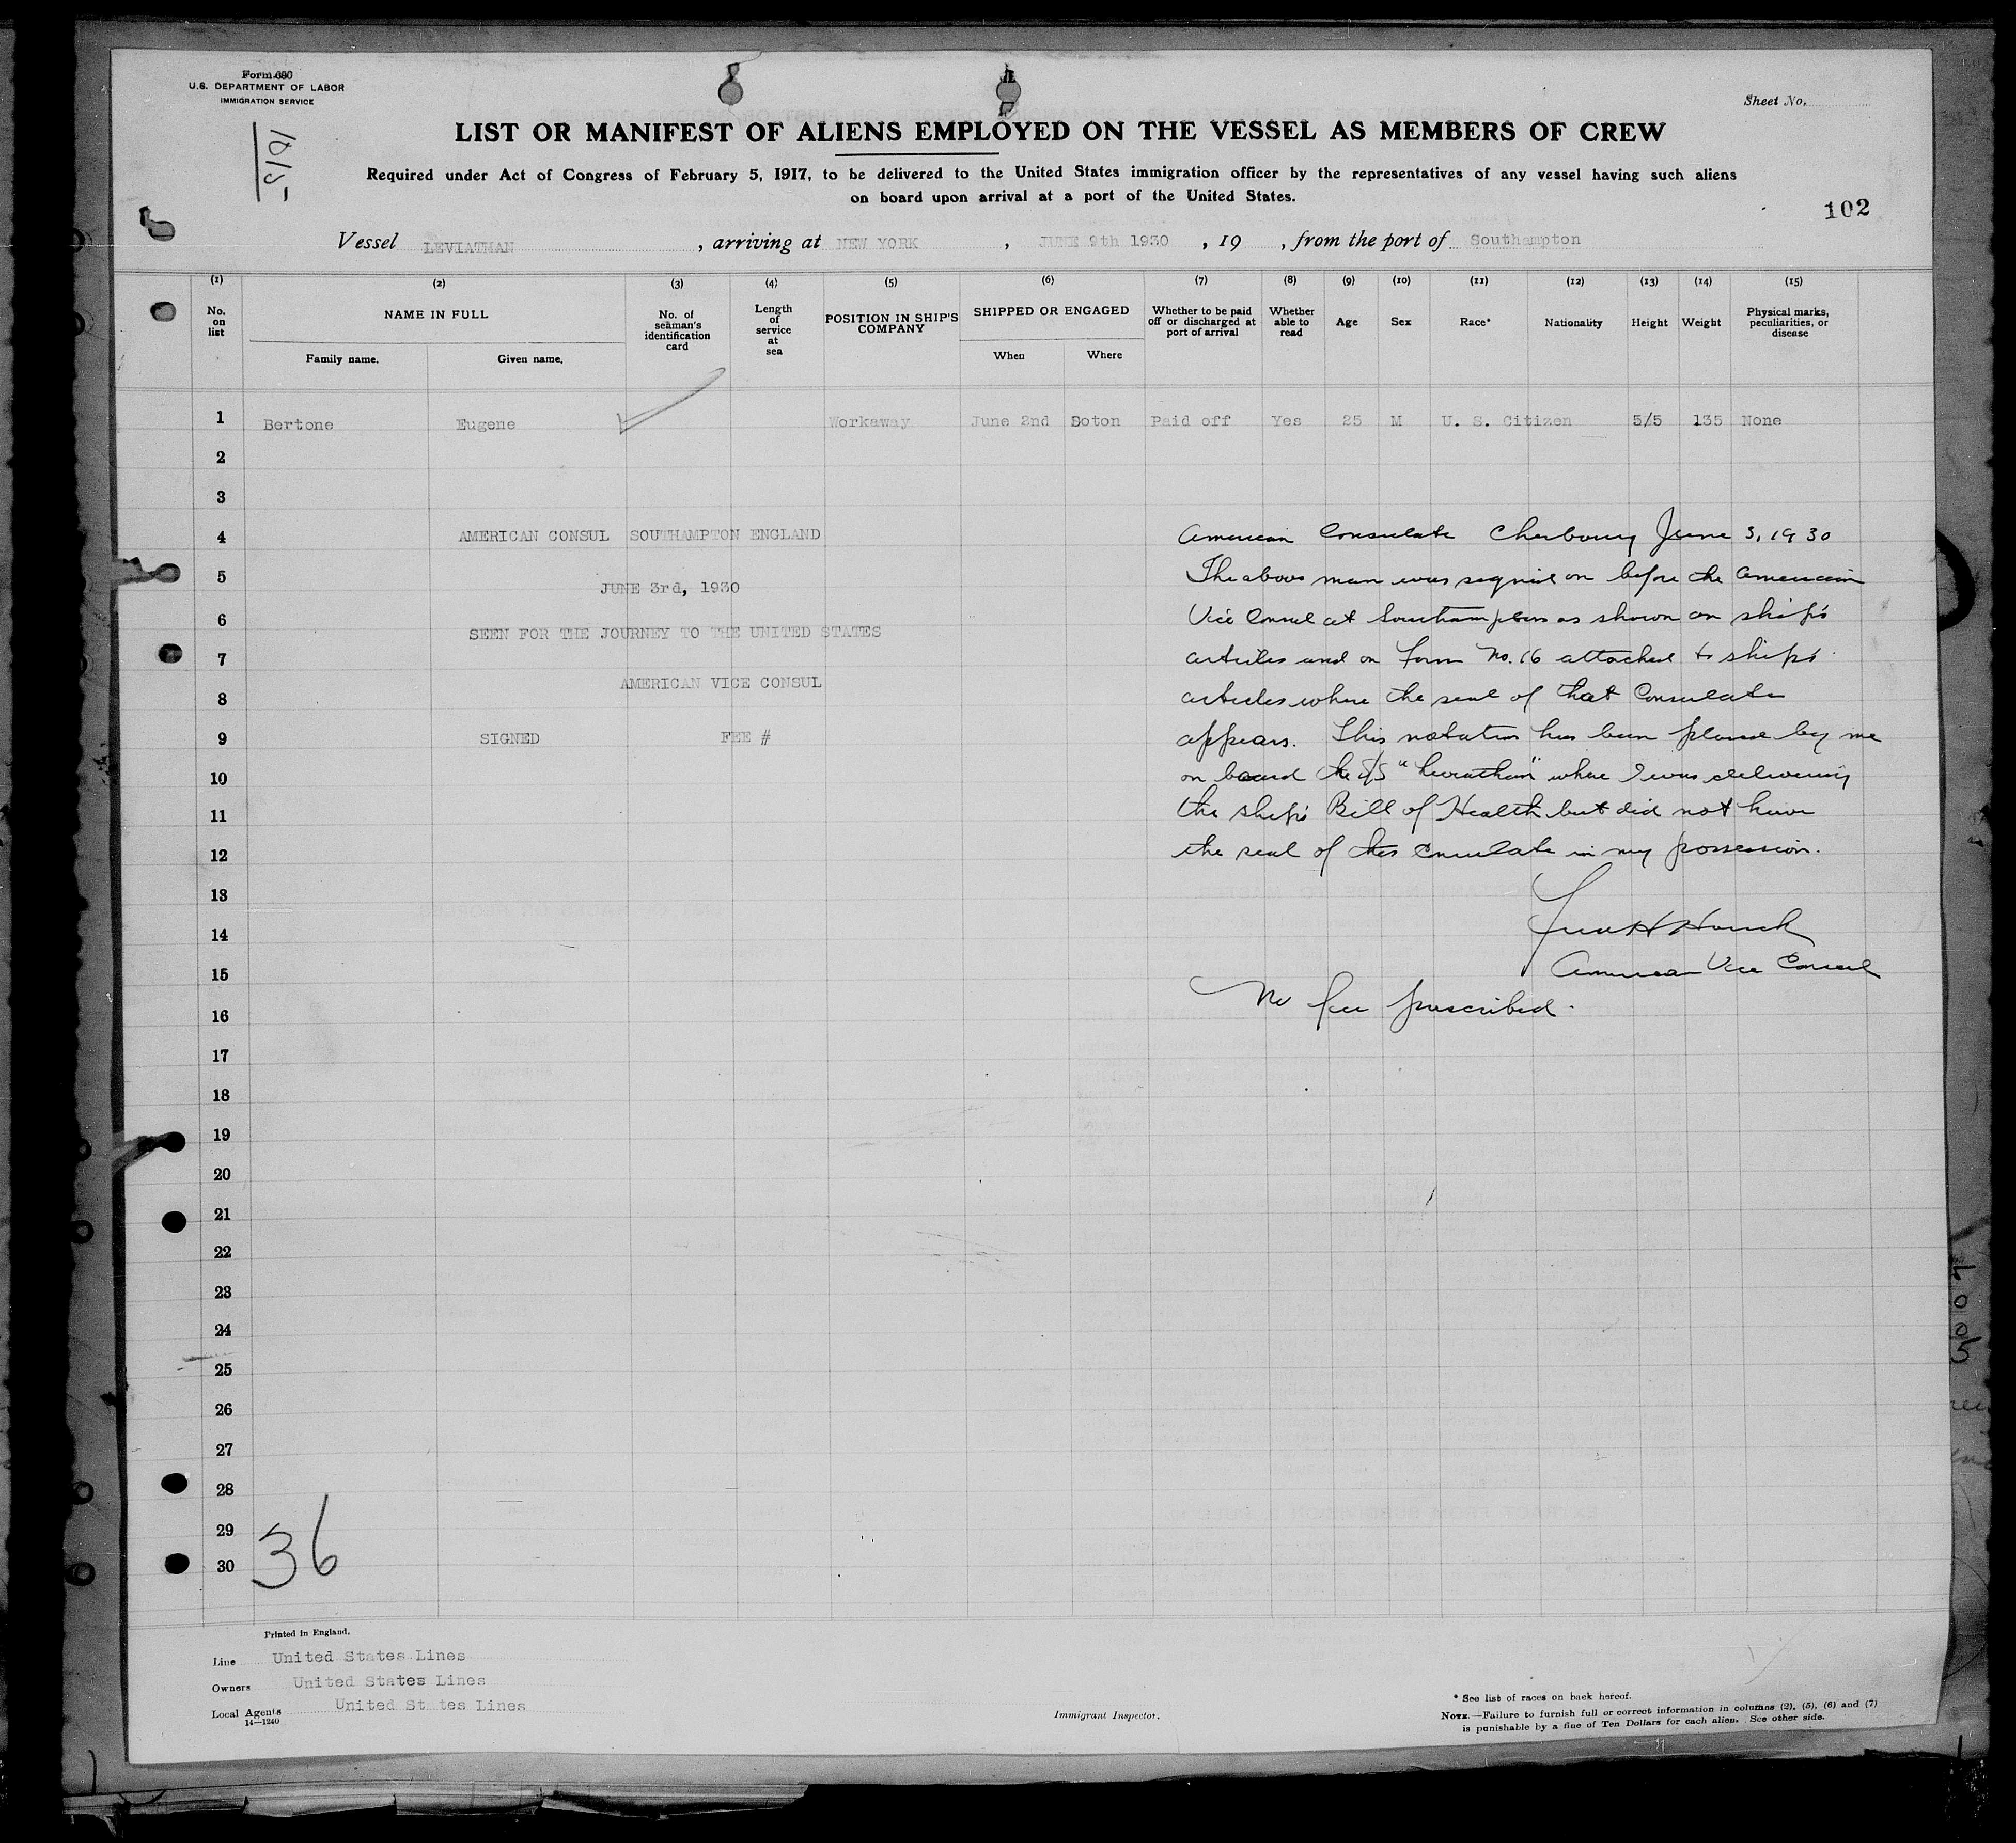 Form 680
U.S. DEPARTMENT OF LABOR
IMMIGRATION SERVICE
Sheet No.
LIST OR MANIFEST OF ALIENS EMPLOYED ON THE VESSEL AS MEMBERS OF CREW
Required under Act of Congress of February 5, 1917, to be delivered to the United States immigration officer by the representatives of any vessel having such aliens
on board upon arrival at a port of the United States.
102
Vessel LEVIATHAN, arriving at NEW YORK, JUNE 9th 1930, 19 , from the port of Southampton
(1) (2) (3) (4) (5) (6) (7) (8) (9) (10) (11) (12) (13) (14) (15)
No. on list
NAME IN FULL
Family name. Given name.
No. of seaman's identification card
Length of service at sea
POSITION IN SHIP'S COMPANY
SHIPPED OR ENGAGED
When Where
Whether to be paid off or discharged at port of arrival
Whether able to read
Age
Sex
Race*
Nationality
Height
Weight
Physical marks, peculiarities, or disease
1 Bertone Eugene Workaway June 2nd Soton Paid off Yes 25 M U. S. Citizen 5/5 135 None
2
3
4 AMERICAN CONSUL SOUTHAMPTON ENGLAND
5 JUNE 3rd, 1930
6 SEEN FOR THE JOURNEY TO THE UNITED STATES
7
8 AMERICAN VICE CONSUL
9 SIGNED FEE #
10
11
12
13
14
15
16
17
18
19
20
21
22
23
24
25
26
27
28
29
30
American Consulate Cherbourg June 3, 1930
The above man was signed on before the American
Vice Consul at Southampton as shown on ship's
articles and on Form No. 16 attached to ship's
articles where the seal of that Consulate
appears. This notation has been placed by me
on board the S/S "Leviathan" where I was delivering
the ship's Bill of Health but did not have
the seal of this Consulate in my possession.
H Houck
American Vice Consul
No fee prescribed.
36
Printed in England.
Line United States Lines
Owners United States Lines
Local Agents United States Lines
14—1240
Immigrant Inspector.
* See list of races on back hereof.
NOTE.—Failure to furnish full or correct information in columns (2), (5), (6) and (7)
is punishable by a fine of Ten Dollars for each alien. See other side.